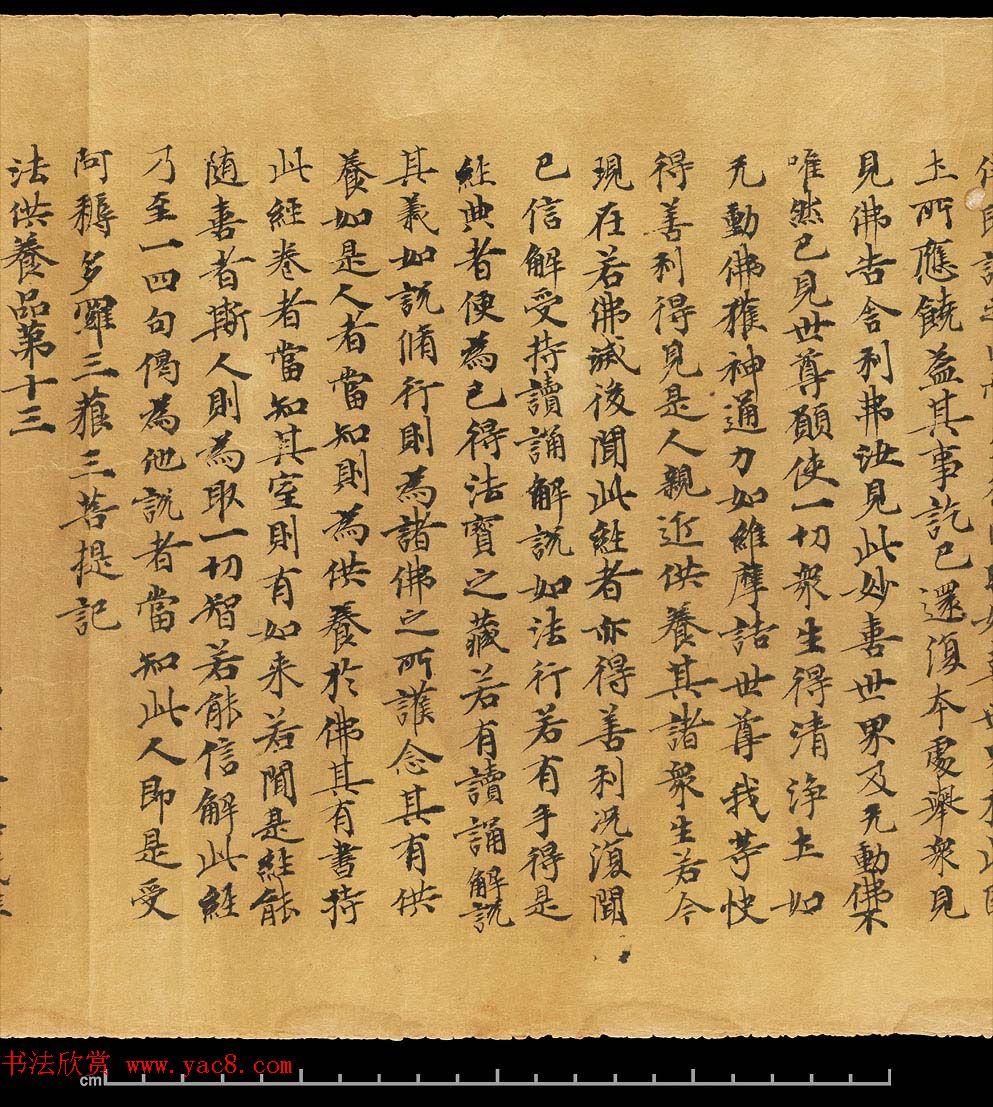 土所應饒益其事訖已還復本處舉衆見
見佛告舍利弗汝見此妙喜世界及无動佛不
唯然已見世尊願使一切衆生得清淨土如
无動佛獲神通力如維摩詰世尊我等快
得善利得見是人親近供養其諸衆生若今
現在若佛滅後聞此經者亦得善利况復聞
已信解受持讀誦解說如法行若有手得是
經典者便為已得法寶之藏若有讀誦解說
其義如說脩行則為諸佛之所護念其有供
養如是人者當知則為供養於佛其有書持
此經卷者當知其室則有如来若聞是經能
随喜者斯人則為取一切智若能信解此經
乃至一四句偈為他說者當知此人即是受
阿耨多羅三藐三菩提記
法供養品第十三
书法欣赏 www.yac8.com
cm